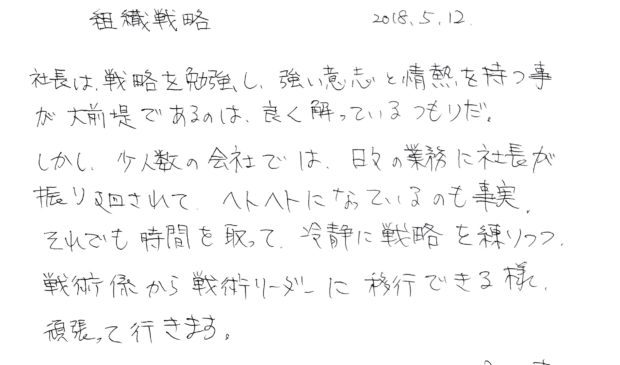 組織戦略 2018.5.12.
社長は、戦略を勉強し、強い意志と情熱を持つ事
が大前堤であるのは、良く解っているつもりだ。
しかし、少人数の会社では、日々の業務に社長が
振り廻されて、ヘトヘトになっているのも事実。
それでも時間を取って、冷静に戦略を練りつつ、
戦術係から戦術リーダーに移行できる様、
頑張って行きます。